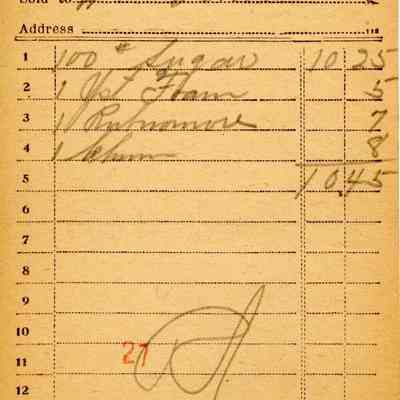 Sold to
Address
1 100 # Sugar 10 25
2 1 Yst Foam 5
3 1 Rubnomore 7
4 1 Chum 8
5 10 45
6
7
8
9
10
11 21
12